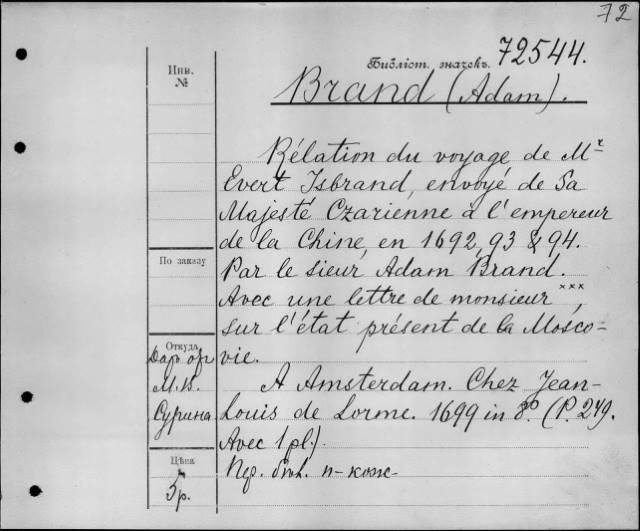 72
Инв.
№
Библіот. значекъ. 72544.
Brand (Adam).
Rélation du voyage de Mr
Evert Isbrand, envoyé de Sa
Majesté Czarienne à l'empereur
de la Chine, en 1692, 93 & 94.
По заказу
Par le sieur, Adam Brand.
Avec une lettre de monsieur xxx,
sur l'état présent de la Mosco-
vie.
Откуда
Даръ
М.В.
Сурина
A Amsterdam. Chez Jean-
Louis de Lorme. 1699 in 8o. (P. 249.
Avec 1 pl.).
Цѣна
5р.
п-кож